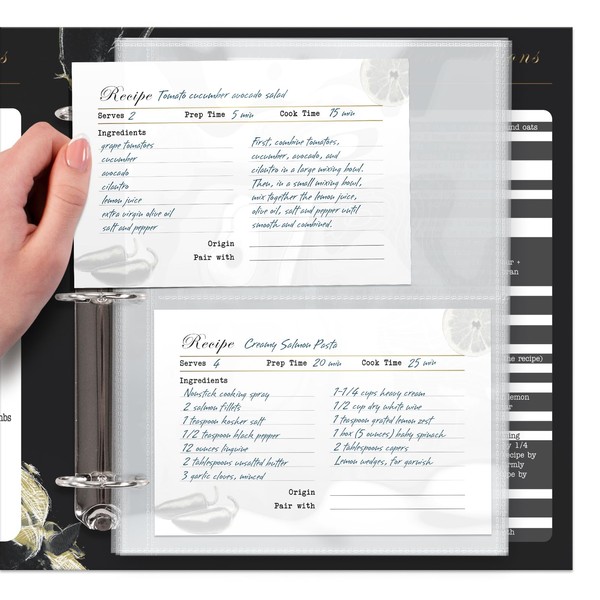 s
ons
Recipe Tomato cucumber avocado salad
Serves 2 Prep Time 5 min Cook Time 15 min
Ingredients
grape tomatoes
cucumber
avocado
cilantro
lemon juice
extra virgin olive oil
salt and pepper
First, combine tomatoes,
cucumber, avocado, and
cilantro in a large mixing bowl.
Then, in a small mixing bowl,
mix together the lemon juice,
olive oil, salt and pepper until
smooth and combined.
Origin
Pair with
Recipe Creamy Salmon Pasta
Serves 4 Prep Time 20 min Cook Time 25 min
Ingredients
Nonstick cooking spray
2 salmon fillets
1 teaspoon kosher salt
1/2 teaspoon black pepper
12 ounces linguine
2 tablespoons unsalted butter
3 garlic cloves, minced
1-1/4 cups heavy cream
1/2 cup dry white wine
1 teaspoon grated lemon zest
1 box (5 ounces) baby spinach
2 tablespoons capers
Lemon wedges, for garnish
Origin
Pair with
nd oats
ur +
ran
he recipe)
lemon
y
ing
y 1/4
ecipe by
rmly
pe by
th
mbs